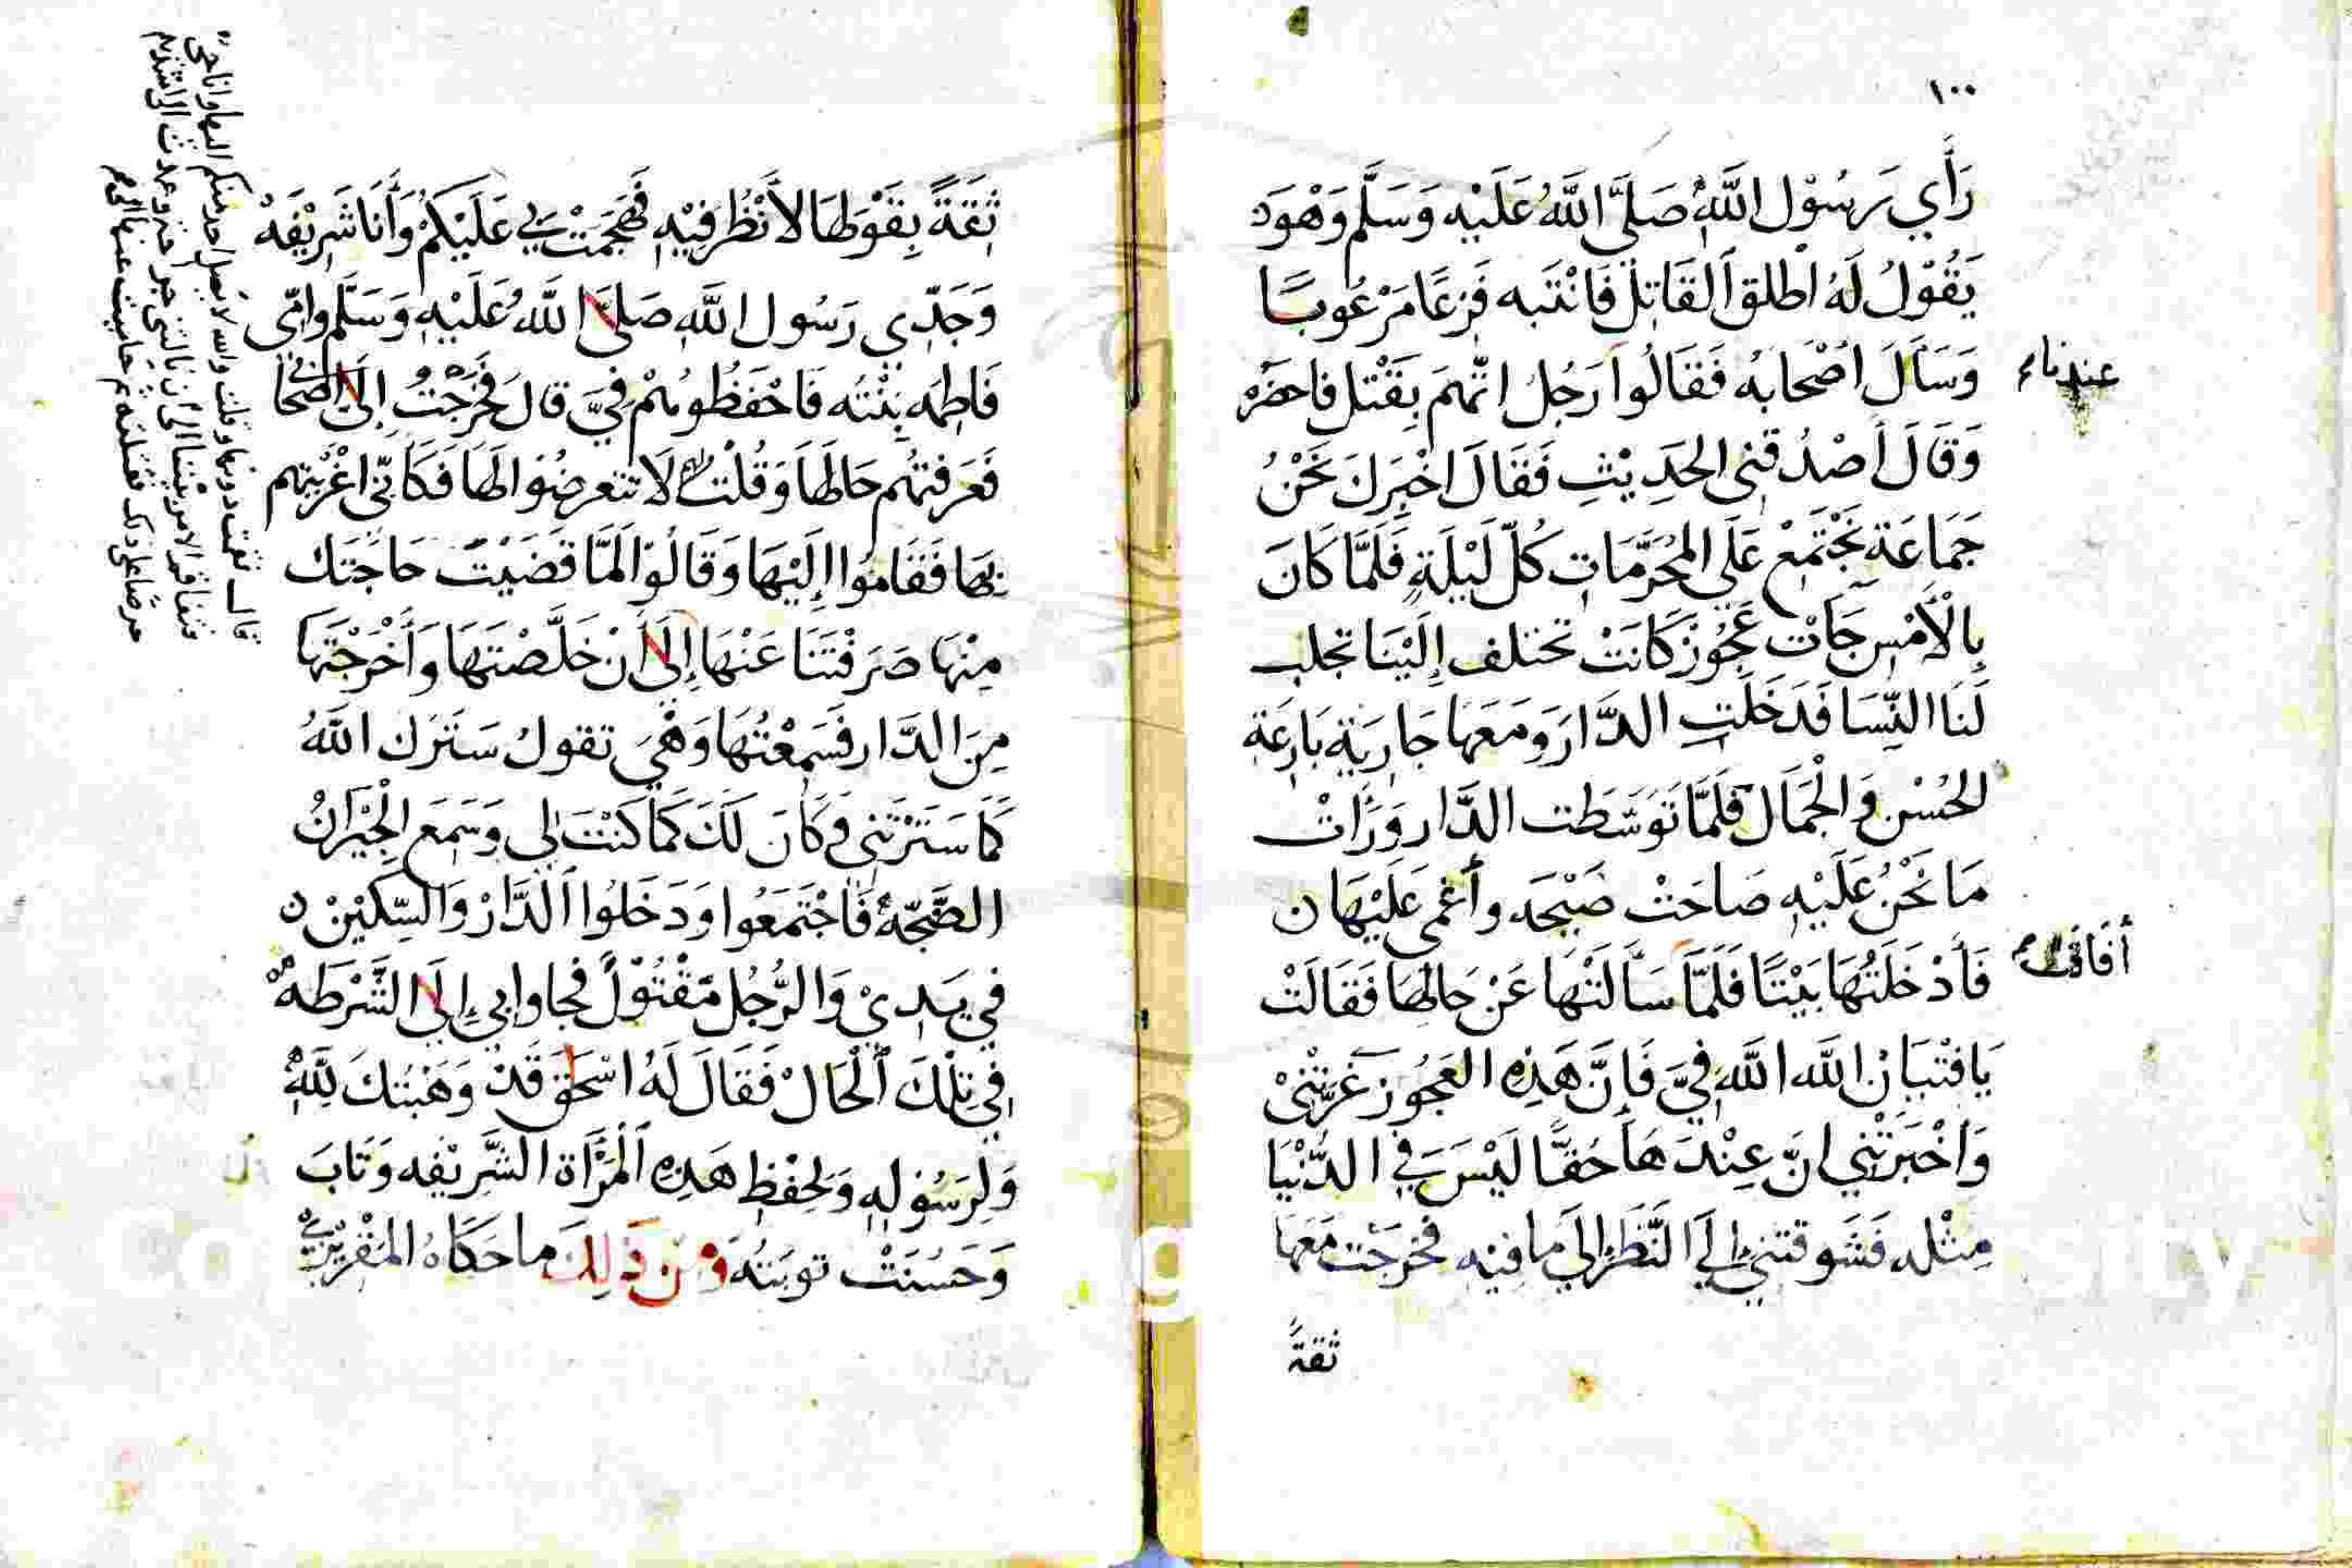 ١٠٠
رَأَي رَسُوْل اللَّهِ صَلَّى اللَّهُ عَلَيْهِ وَسَلَّم وَهْوَ
يَقُوْلُ لَهُ اطلق القَاتِل فَانْتَبه فَزِعًا مَرْعُوبًا
وَسَأَلَ اصْحَابَهُ فَقَالُوا رَجُلُ اتُّهِمَ بِقَتْل فاحضره
عندنا
وَقَالَ أَصْدُقني الحَدِيْثِ فَقَالَ اخْبِرَكَ نَحْنُ
جَمَاعَة نَجْتَمِعْ عَلَى المُحَرَّمَاتِ كُلّ لَيْلَةٍ فَلَمَّا كَانَ
بِالْأَمْسِ جَآتْ عَجُوْزَ كَانَتْ تختلف إِلَيْنَا تجلب
لَنَا النِّسَا فَدَخَلَتِ الدَّارَ وَمَعَهَا جَارِيَة بَارِعَة
الحُسْن وَالْجَمَال فَلَمَّا تَوَسَّطت الدَّار وَرَأَتْ
مَا نَحْنُ عَلَيْهِ صَاحَتْ صَيْحَه وأغمى عَلَيْهَا
فَأَدْخَلَتُهَا بَيْتًا فَلَمَّا سَأَلَتْهَا عَنْ حَالِهَا فَقَالَتْ
أفاقت
يَا فتْيَانْ اللَّه اللَّه فِيَّ فَإِنَّ هَذِهِ العَجُوز غَرَّتْنِىْ
وَاخْبَرَتْنِي انَّ عِنْدَهَا حُقًّا لَيْسَ فِي الدُّنْيَا
مِثْله فَشَوقتني إِلَى النَّظَرِ إِلَى مَا فِيْهِ فخرجت مَعَهَا
ثقةً
ثِقَةً بِقَوْلِهَا لأَنْظُرَ فِيْهِ فَهَجَمَتْ بِي عَلَيْكُمْ وَأَنَا شَرِيْفَهْ
وَجَدِّي رَسُول اللَّهِ صَلَى اللَّهُ عَلَيْهِ وَسَلَّم وامّى
فَاطِمَه بِنْتُه فَاحْفَظُوهُمْ فِيَّ قالَ فَخَرَجْتُ إِلَى اصْحَابي
فَعَرفتهُم حَالَهَا وَقُلْتُ لَا تتعرضُوا لَهَا فَكَانّي اغْرَيْتهم
بِهَا فَقَامُوا إِلَيْهَا وَقَالُوْا لَمَّا قَضَيْتَ حَاجَتَك
مِنْهَا صَرَفْتَنَا عَنْهَا إِلَى أَنْ خَلَّصْتَهَا وَأَخْرَجْتَهَا
مِنَ الدَّار فَسَمِعْتُهَا وَهْيَ تقولُ سَتَرَك اللَّهُ
كَمَا سَتَرْتَنِي وَكَانَ لَكَ كَمَا كُنْتَ لِي وَسَمِعَ الْجِيْرَانُ
الضَّجَّة فَاجْتَمَعُوا وَدَخَلُوا الدَّارْ وَالسِّكِيْنْ
فِي يَدِيْ وَالرَّجُل مَقْتُوْلٌ فجاوا بي إِلَى الشَّرْطَة
فِي تِلْكَ الْحَالْ فَقَالَ لَهُ اسْحَق قَدْ وَهَبْتُكَ لِلَّهِ
وَلِرَسُوْلِهِ وَلحِفْظِ هَذِهِ الْمَرْأَة الشَّرِيْفه وَتَابَ
وَحَسُنَتْ توبتهُ وَمِنْ ذَلِكَ ما حَكَاهُ المَقْرِيْزِيْ